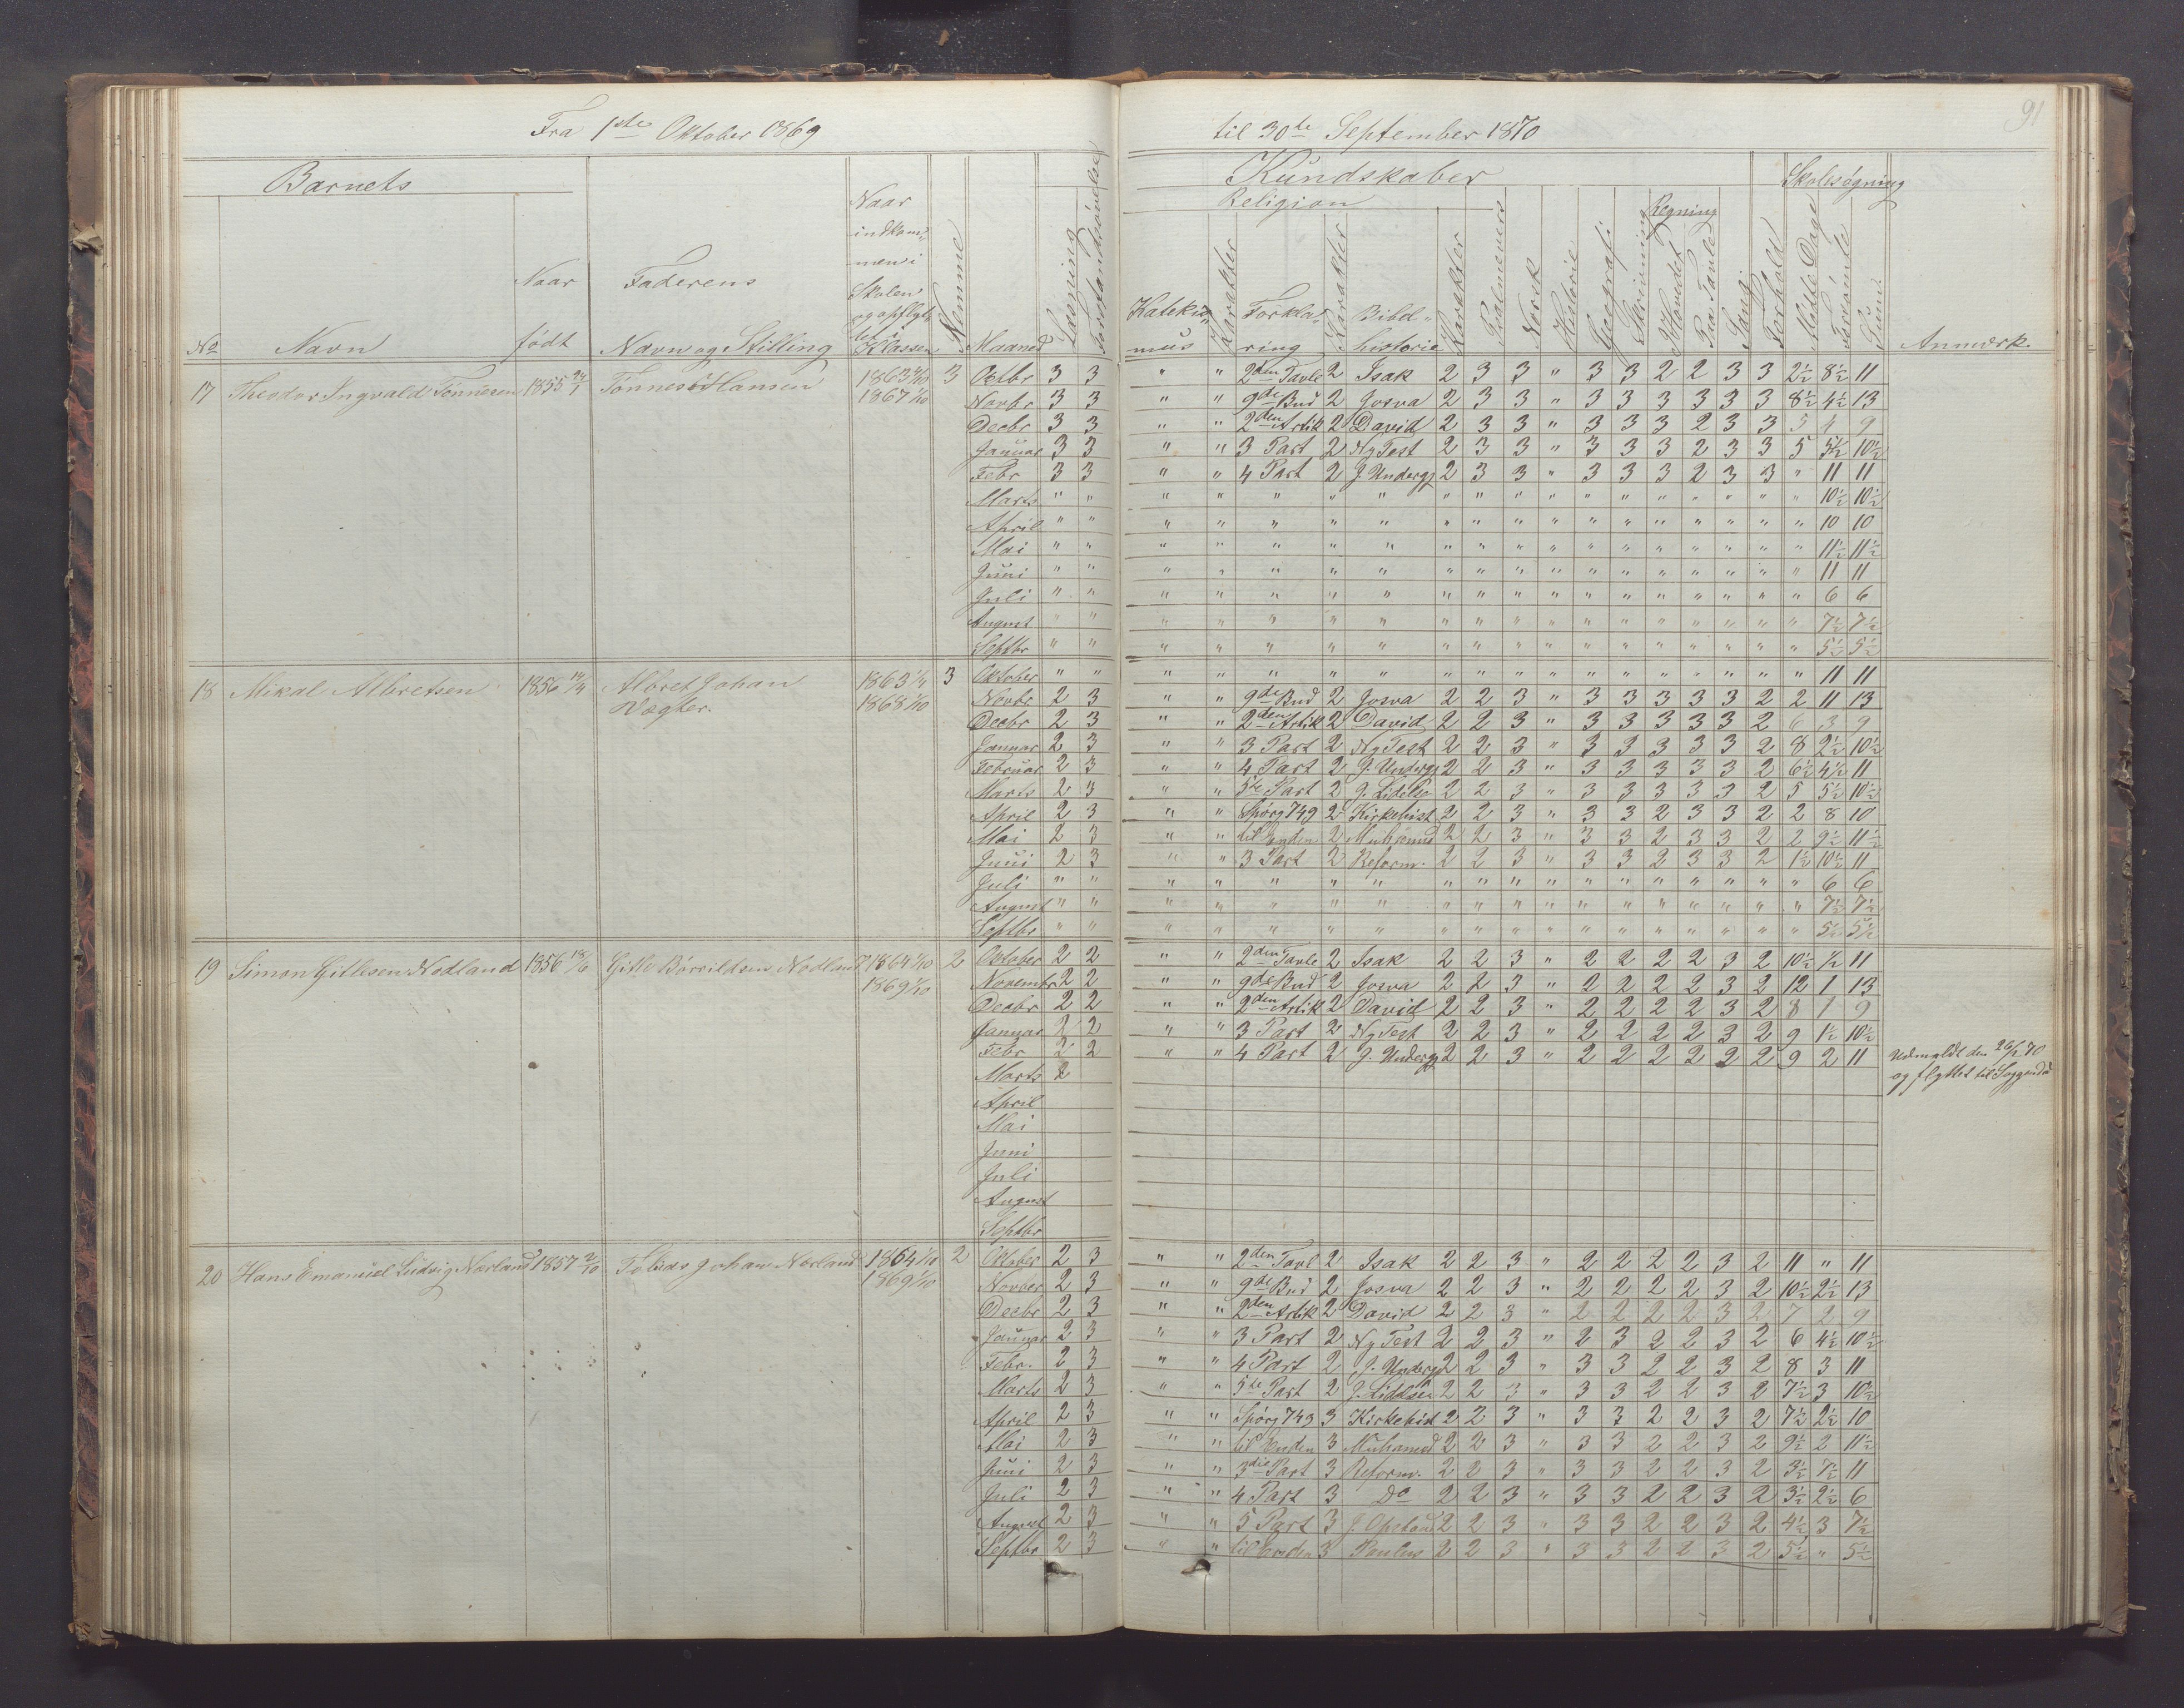 91
Fra 1ste Oktober 1869 til 30te September 1870
Barnets Kundskaber Skolesøgning
Religion Regning
No Navn Naar født Faderens Navn og Stilling Naar indkommen i Skolen og opflyttet i Klassen Nemme Maaned Læsning Forstandsøvelser Katekismus Karakter Forklaring Karakter Bibelhistorie Karakter Psalmevers Norsk Historie Geografi Skrivning I Hovedet Paa Tavle Sang Forhold Mødte Dage Forsømte Sum Anmærk.
17 Theodor Ingvald Tønnesen 1855 24/1 Tønnes Hansen 1863 1/10 3 Octbr 3 3 " " 2den Tavle 2 Isak 2 3 3 " 3 3 2 2 3 3 2½ 8½ 11
1867 1/10 Novbr 3 3 " " 9de Bud 2 Josva 2 3 3 " 3 3 3 3 3 3 8½ 4½ 13
Decbr 3 3 " " 2den Artik 2 David 2 3 3 " 3 3 3 2 3 3 5 4 9
Januar 3 3 " " 3 Part 2 Ny Test 2 3 3 " 3 3 3 2 3 3 5 5½ 10½
Febr 3 3 " " 4 Part 2 J. Undergj 2 3 3 " 3 3 3 2 3 3 " 11 11
Marts " " " " " " " " " " " " " " " " " " " 10½ 10½
April " " " " " " " " " " " " " " " " " " " 10 10
Mai " " " " " " " " " " " " " " " " " " " 11½ 11½
Juni " " " " " " " " " " " " " " " " " " " 11 11
Juli " " " " " " " " " " " " " " " " " " " 6 6
August " " " " " " " " " " " " " " " " " " " 7½ 7½
Septbr " " " " " " " " " " " " " " " " " " " 5½ 5½
18 Mikal Albretsen 1856 14/4 Albret Johan 1863 1/4 3 Oktober " " " " " " " " " " " " " " " " " " " 11 11
Vægter. 1868 1/10 Novbr 2 3 " " 9de Bud 2 Josva 2 2 3 " 3 3 3 3 3 2 2 11 13
Decbr 2 3 " " 2den Artik 2 David 2 2 3 " 3 3 3 3 3 2 6 3 9
Januar 2 3 " " 3 Part 2 Ny Test 2 2 3 " 3 3 3 3 3 2 8 2½ 10½
Februar 2 3 " " 4 Part 2 J. Undergj 2 2 3 " 3 3 3 3 3 2 6½ 4½ 11
Marts 2 3 " " 5te Part 2 J. Lidelse 2 2 3 " 3 3 3 3 3 2 5 5½ 10½
April 2 3 " " Spørg 749 2 Kirkehist 2 2 3 " 3 3 2 3 3 2 2 8 10
Mai 2 3 " " til Enden 2 Muhamed 2 2 3 " 3 3 2 3 3 2 2 9½ 11½
Juni 2 3 " " 3 Part 2 Reform. 2 2 3 " 3 3 2 3 3 2 1½ 10½ 11
Juli " " " " " " " " " " " " " " " " " " " 6 6
August " " " " " " " " " " " " " " " " " " " 7½ 7½
Septbr " " " " " " " " " " " " " " " " " " " 5½ 5½
19 Simon Gitlesen Nodland 1856 18/6 Gitle Børrildsen Nodland 1864 1/10 2 October 2 2 " " 2den Tavle 2 Isak 2 2 3 " 2 2 2 2 3 2 10½ ½ 11
1869 1/10 Novembr 2 2 " " 9de Bud 2 Josva 2 2 3 " 2 2 2 2 3 2 12 1 13
Decbr 2 2 " " 2den Artik 2 David 2 2 3 " 2 2 2 2 3 2 8 1 9
Januar 2 2 " " 3 Part 2 Ny Test 2 2 3 " 2 2 2 2 3 2 9 1½ 10½
Febr 2 2 " " 4 Part 2 J. Undergj 2 2 3 " 2 2 2 2 2 2 9 2 11 Udmeldt den 26/2 70
Marts 2 og flyttet til Soggendal
April
Mai
Juni
Juli
August
Septbr
20 Hans Emanuel Ludvig Nærland 1857 2/10 Tobias Johan Nærland 1864 1/10 2 Oktober 2 3 " " 2den Tavl 2 Isak 2 2 3 " 2 2 2 2 3 2 11 " 11
1869 1/10 Novber 2 3 " " 9de Bud 2 Josva 2 2 3 " 2 2 2 2 3 2 10½ 2½ 13
Decbr 2 3 " " 2den Artik 2 David 2 2 3 " 2 2 2 2 3 2 7 2 9
Januar 2 3 " " 3 Part 2 Ny Test 2 2 3 " 2 3 2 2 3 2 6 4½ 10½
Febr. 2 3 " " 4 Part 2 J. Undergj 2 2 3 " 3 3 2 2 3 2 8 3 11
Marts 2 3 " " 5te Part 2 J. Lidelse 2 2 3 " 3 3 2 2 3 2 7½ 3 10½
April 2 3 " " Spørg 749 3 Kirkehist 2 2 3 " 3 3 2 2 3 2 7½ 2½ 10
Mai 2 3 " " til Enden 3 Muhamed 2 2 3 " 3 3 2 2 3 2 9½ 2 11½
Juni 2 3 " " 3die Part 3 Reform. 2 2 3 " 3 3 2 2 3 2 3½ 7½ 11
Juli 2 3 " " 4 Part 3 Do 2 2 3 " 3 3 2 2 3 2 3½ 2½ 6
August 2 3 " " 5 Part 3 J. Opstand 2 2 3 " 3 3 2 2 3 2 4½ 3 7½
Septbr 2 3 " " til Enden 3 Paulus 2 2 3 " 3 3 2 2 3 2 5½ " 5½